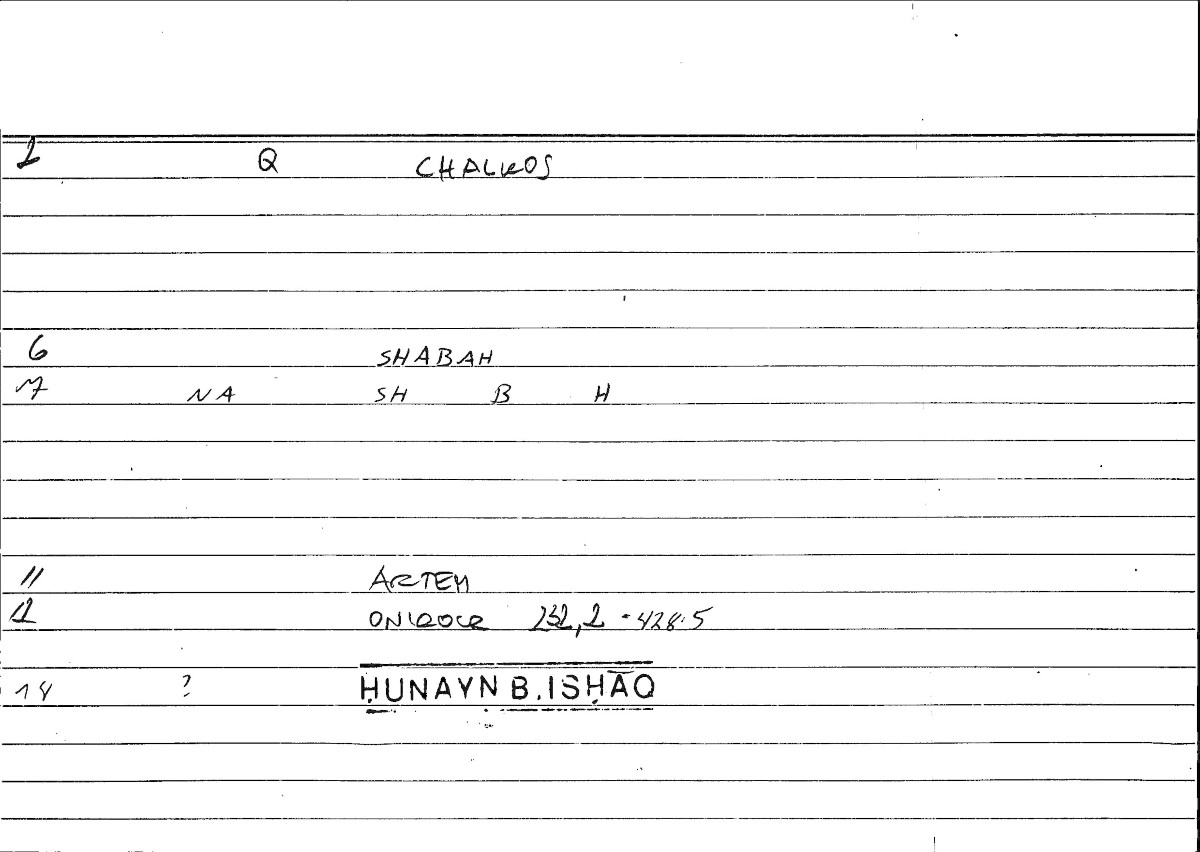 1 Q CHALKOS
6 SHABAH
7 NA SH B H
11 ARTEM
12 ONIROCR 232,2 - 428.5
14 ? ḤUNAYN B. ISḤĀQ